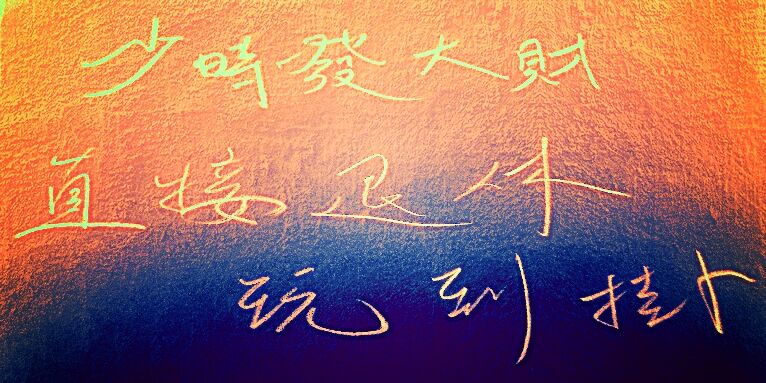 少時發大財
直接退休
玩到掛